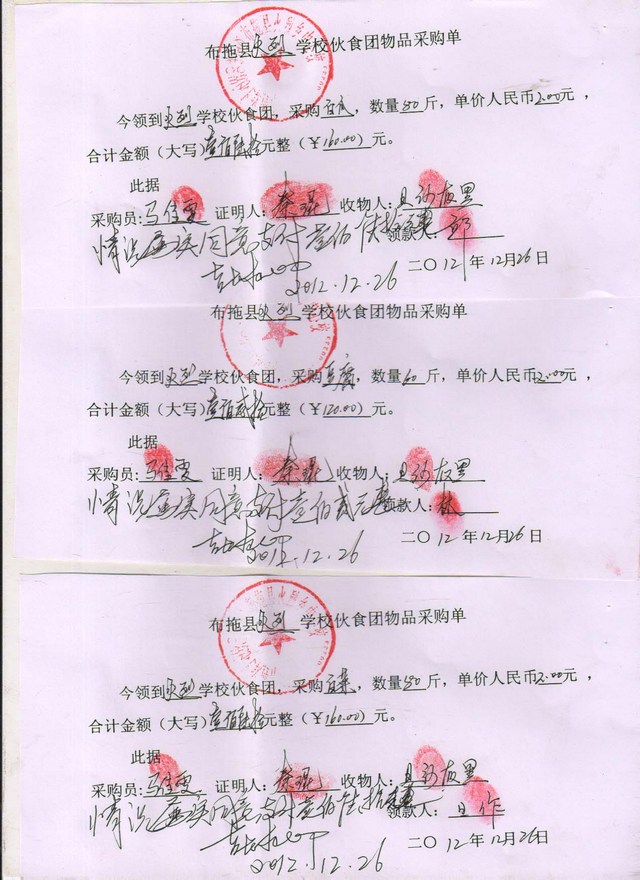 布拖县火烈学校伙食团物品采购单
今领到火烈学校伙食团，采购，数量80斤，单价人民币2.00元，
合计金额（大写）壹佰陆拾元整（￥160.00）元。
此据
采购员:马佳雯 证明人：秦 收物人：且沙友里
情况属实同意支付壹佰陆拾元整 领款人：邱
2012.12.26 二〇12年12月26日
布拖县火烈学校伙食团物品采购单
今领到火烈学校伙食团，采购豆腐，数量60斤，单价人民币2.00元，
合计金额（大写）壹佰贰拾元整（￥120.00）元。
此据
采购员:马佳雯 证明人：秦 收物人：且沙友里
情况属实同意支付壹佰贰元整 领款人：林
2012.12.26 二〇12年12月26日
布拖县火烈学校伙食团物品采购单
今领到火烈学校伙食团，采购白菜，数量80斤，单价人民币2.00元，
合计金额（大写）壹佰陆拾元整（￥160.00）元。
此据
采购员:马佳雯 证明人：秦 收物人：且沙友里
情况属实同意支付壹佰陆拾元整 领款人：且作
2012.12.26 二〇12年12月26日